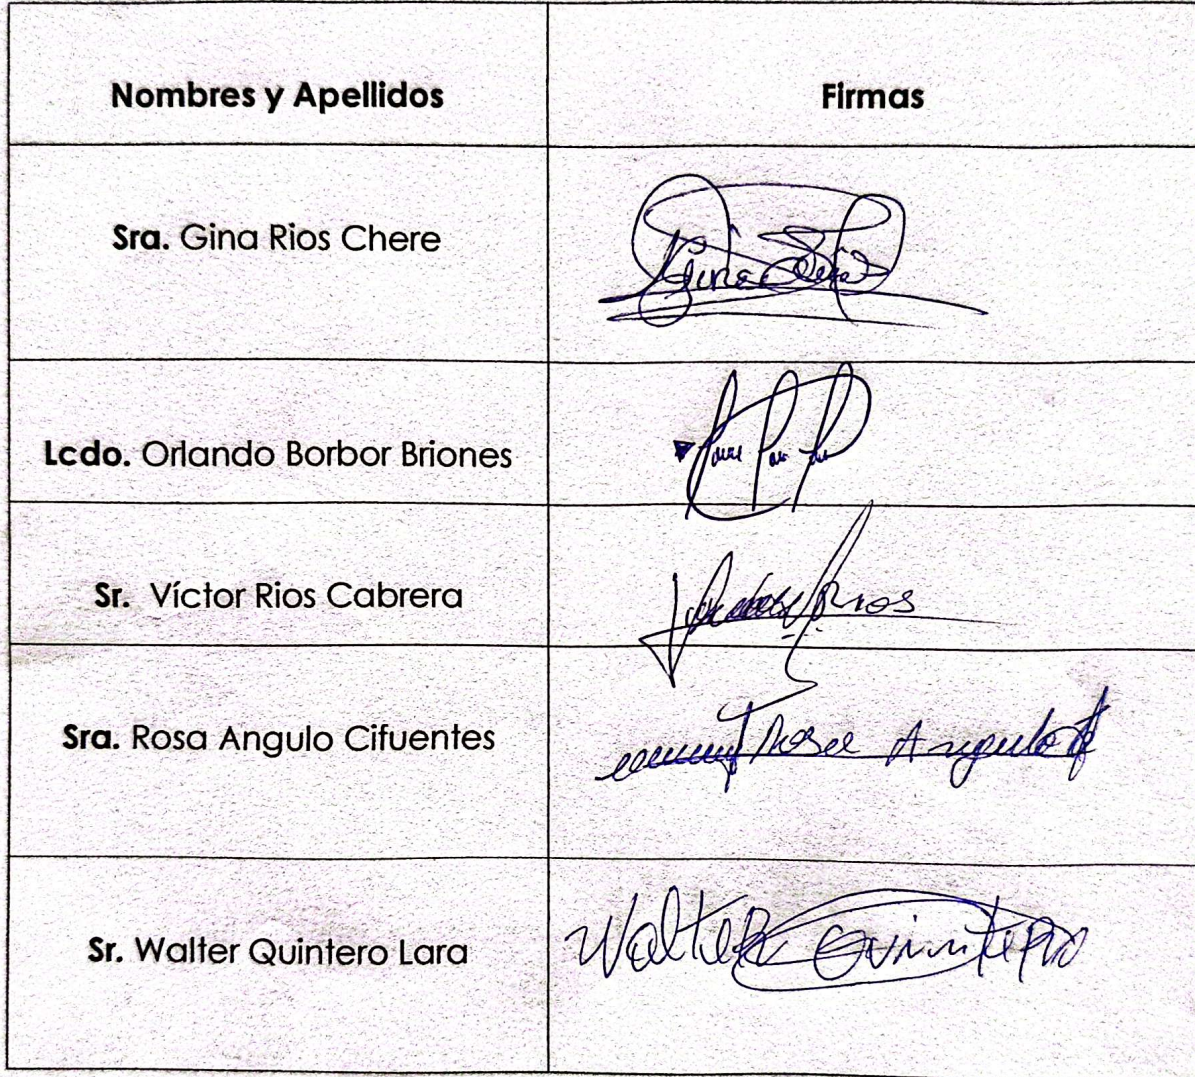 Nombres y Apellidos Firmas
Sra. Gina Rios Chere
Gina Rios
Lcdo. Orlando Borbor Briones
Sr. Víctor Rios Cabrera
Rios
Sra. Rosa Angulo Cifuentes
Rosa Angulo
Sr. Walter Quintero Lara
Walter Quintero